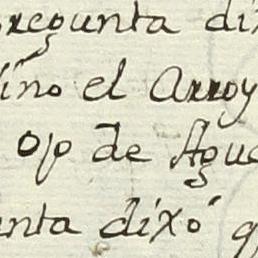 pregunta di
ino el Arroy
op de Agu
nta dixó q